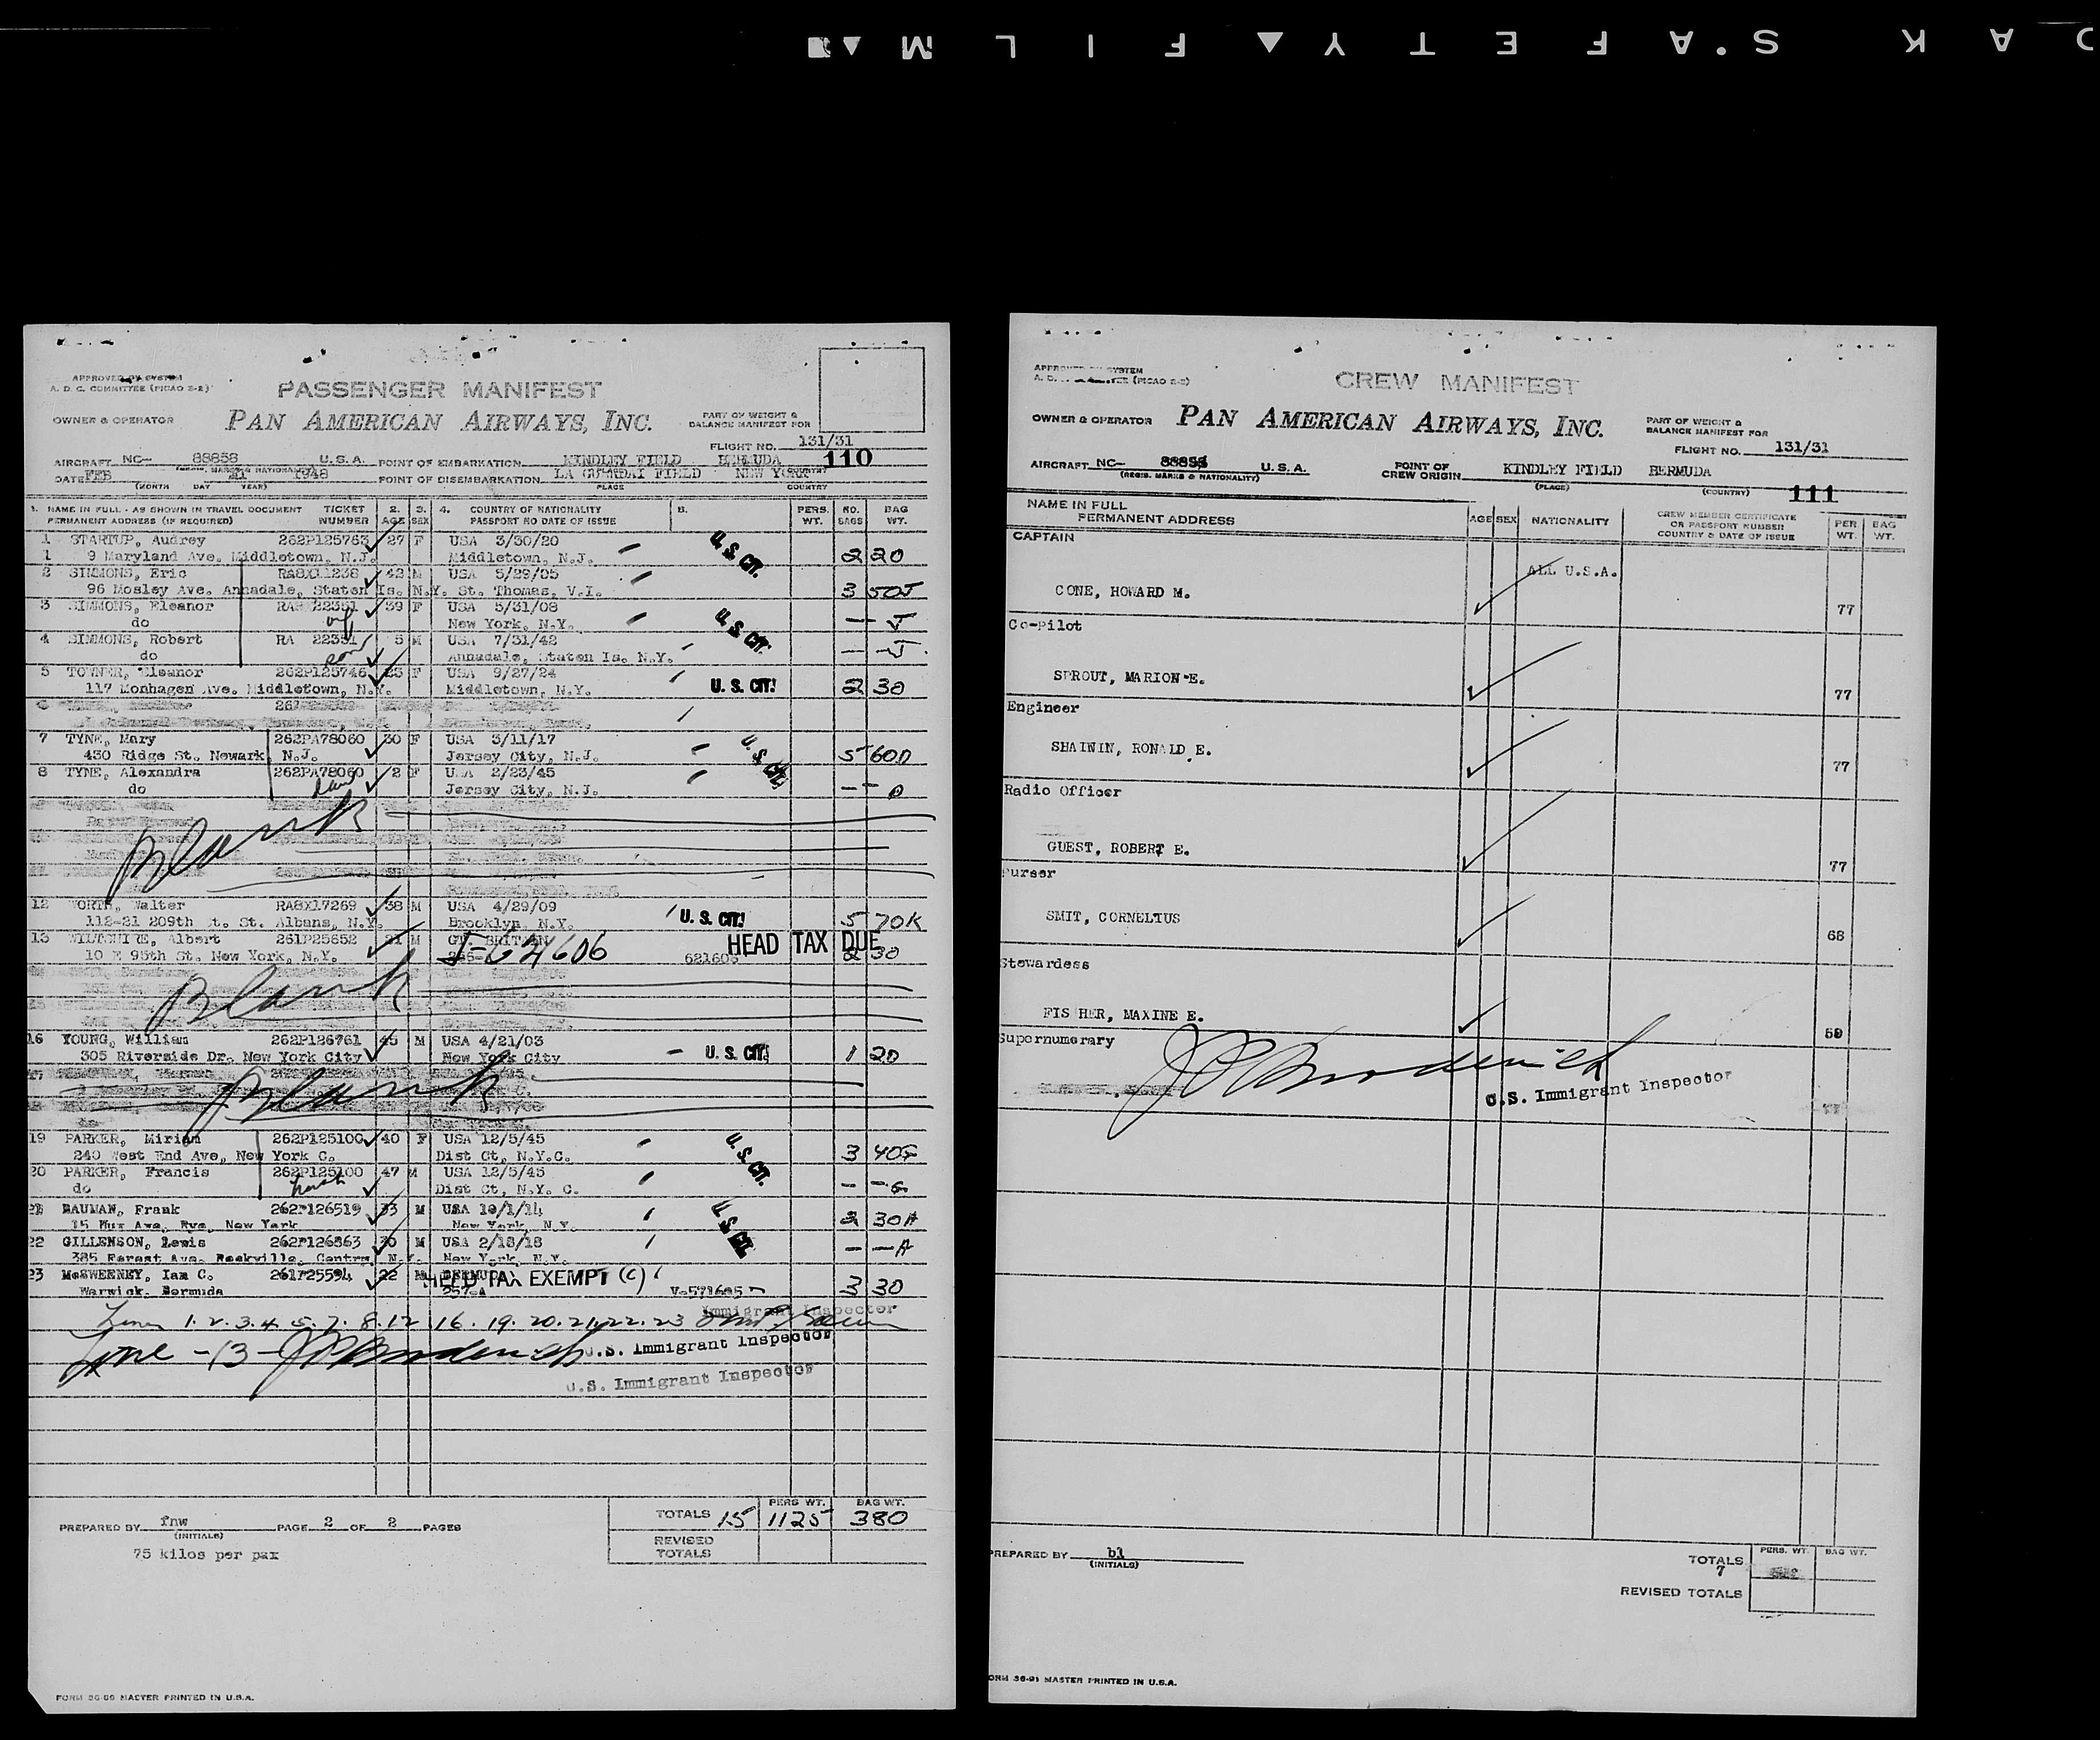 PASSENGER MANIFEST
A. D. C. COMMITTEE (PICAO 2-2)
OWNER & OPERATOR PAN AMERICAN AIRWAYS, INC. PART OF WEIGHT & BALANCE MANIFEST FOR
FLIGHT NO. 131/31
AIRCRAFT NC- 88858 U.S.A. POINT OF EMBARKATION KINDLEY FIELD BERMUDA 110
DATE FEB 21 1948 POINT OF DISEMBARKATION LA GUARDAI FIELD NEW YORK
(MONTH DAY YEAR) PLACE COUNTRY
1. NAME IN FULL - AS SHOWN IN TRAVEL DOCUMENT TICKET 2. 3. 4. COUNTRY OF NATIONALITY 5. PERS. NO. BAG
PERMANENT ADDRESS (IF REQUIRED) NUMBER AGE SEX PASSPORT NO DATE OF ISSUE WT. BAGS WT.
1 STARTUP, Audrey 262P125763 27 F USA 3/30/20 U.S. CIT.
1 9 Maryland Ave. Middletown, N.J. Middletown, N.J. 2 20
2 SIMMONS, Eric RA8X11238 42 M USA 5/29/05
96 Mosley Ave. Annadale, Staten Is. N.Y. St. Thomas, V.I. 3 50J
3 SIMMONS, Eleanor 39 F USA 5/31/08 U.S. CIT.
do New York, N.Y. — J
4 SIMMONS, Robert RA 22351 5 M USA 7/31/42
do son Annadale, Staten Is. N.Y. — — J
5 TOWNER, Eleanor 262P125746 23 F USA 9/27/24
117 Monhagen Ave. Middletown, N.Y. Middletown, N.Y. U. S. CIT! 2 30
7 TYNE, Mary 262PA78060 30 F USA 3/11/17 U.S. CIT.
430 Ridge St. Newark N.J. Jersey City, N.J. 5 60D
8 TYNE, Alexandra 262PA78060 2 F USA 2/23/45
do dau Jersey City, N.J. — — D
Blank
12 WORTH, Walter RA8X17269 38 M USA 4/29/09
112-21 209th St. St. Albans, N.Y. Brooklyn, N.Y. U. S. CIT! 5 70K
13 WILTSHIRE, Albert 261P25652 21 M GT. BRITAIN HEAD TAX DUE
10 E 95th St. New York, N.Y. I-624606 2 30
Blank
16 YOUNG, William 262P126761 45 M USA 4/21/03
305 Riverside Dr. New York City New York City U. S. CIT! 1 20
Blank
19 PARKER, Miriam 262P125100 40 F USA 12/5/45 U.S. CIT.
240 West End Ave, New York C. Dist Ct, N.Y.C. 3 40G
20 PARKER, Francis 262P125100 47 M USA 12/5/45
do husb Dist Ct, N.Y. C. — — G
21 BAUMAN, Frank 262P126519 33 M USA 10/1/14 U.S. CIT.
New York, N.Y. 2 30A
22 GILLENSON, Lewis 262P126563 30 M USA 2/18/18
385 Forest Ave. Rockville, Centre, N.Y. New York, N.Y. — — A
23 McSWEENEY, Ian C. 261P25594 22 M HEAD TAX EXEMPT (C)
Warwick, Bermuda 257-A V-571605 3 30
Immigrant Inspector
Lines 1. 2. 3. 4. 5. 7. 8. 12. 16. 19. 20. 21. 22. 23
Line - 13 - J P Broderick U.S. Immigrant Inspector
U.S. Immigrant Inspector
PERS WT. BAG WT.
PREPARED BY fnw PAGE 2 OF 2 PAGES TOTALS 15 1125 380
(INITIALS) REVISED TOTALS
75 kilos per pax
FORM 36-90 MASTER PRINTED IN U.S.A.
CREW MANIFEST
OWNER & OPERATOR PAN AMERICAN AIRWAYS, INC. PART OF WEIGHT & BALANCE MANIFEST FOR
FLIGHT NO. 131/31
AIRCRAFT NC- 88858 U.S.A. POINT OF CREW ORIGIN KINDLEY FIELD BERMUDA
(REGIS. MARKS & NATIONALITY) (PLACE) (COUNTRY) 111
NAME IN FULL
PERMANENT ADDRESS AGE SEX NATIONALITY CREW MEMBER CERTIFICATE OR PASSPORT NUMBER COUNTRY & DATE OF ISSUE PER. WT. BAG WT.
CAPTAIN
ALL U.S.A.
CONE, HOWARD M. 77
Co-Pilot
SPROUT, MARION E. 77
Engineer
SHAININ, RONALD E. 77
Radio Officer
GUEST, ROBERT E. 77
Purser
SMIT, CORNELIUS 68
Stewardess
FISHER, MAXINE E. 59
Supernumerary
J P Broderick
U.S. Immigrant Inspector
77
PREPARED BY bl
(INITIALS)
PERS. WT. BAG WT.
TOTALS
7
REVISED TOTALS
FORM 36-91 MASTER PRINTED IN U.S.A.